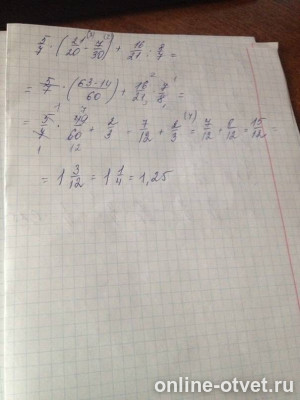 5/7 · (21/20 - 7/30) + 16/21 : 8/7 =
= 5/7 · (63-14/60) + 16/21 · 7/8 =
= 5/7 · 49/60 + 2/3 = 7/12 + 2/3 = 7/12 + 8/12 = 15/12 =
= 1 3/12 = 1 1/4 = 1,25
online-otvet.ru